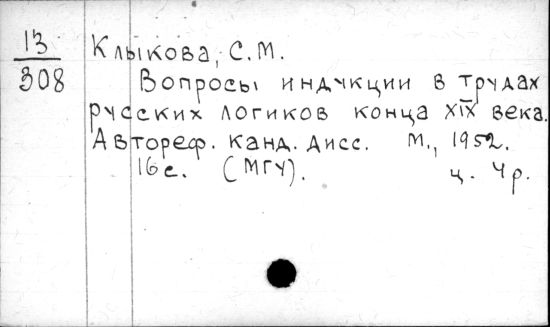 13 Клыкова, С.М.
308 Вопросы индукции в трудах
русских логиков конца XIX века.
Автореф. канд. дисс. М., 1952.
16с. (МГУ). ц. 4р.